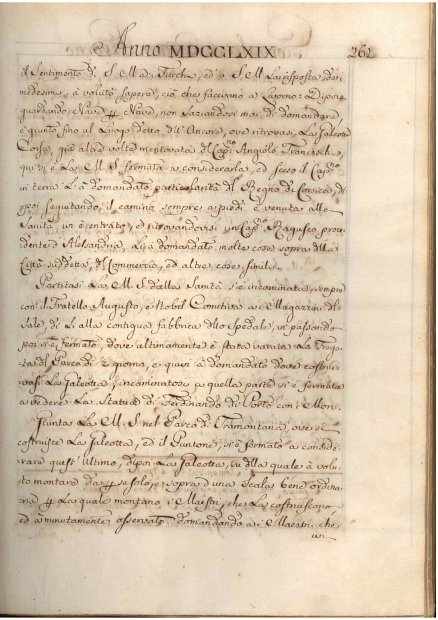 Anno MDCCLXIX 262
il Sentimento di S. E. M. Turch, ed à S. E. M. La risposta dei
medesimi, à voluto sapere, ciò che facciano a Livorno: Dipoi
guardando, Nave p Nave, non saziandosi mai di domandare,
è giunto fino al Luogo detto dll'Ancore, ove ritrovasi La Galeotta
Corsa, già altre volte mentovata dl Cap.no Angiolo Franceschi,
qui vi è La M. S. fermata a considerarla, ed sceso il Cap.no
in terra Li à domandato particolarità dl Regno di Corsica, di
poi seguitando, il camino sempre a piedi è venuta alla
Sanità, vi è entrato, ed ritrovandovisi un Cap.no Raguseo prove
niente d'Alesandria, Li à domandato molte cose sopra dlla
Città suddetta, dl Commercio, ed altre cose simili.
Partitasi La M. S. dalla Sanità s'è incominata, sempre
con il Fratello Augusto, e Nobil Comitiva a i Magazzini dl
Sale, di Lì alla contigua fabbrica dllo Spedale, in passando
poi si è fermato, dove ultimamente è stata varata La Frega
ta dl Parco di Z giorna, e quivi à domandato dove costrui
vasi La Galeotta, incaminatosi a quella parte si è fermata
a vedere La Statua di Ferdinando di Porto con i Mori.
Giunta La M. S. nel Parco di Tramontana, ove si
costruisce La Galeotta, ed il Puntone, si è fermato a conside
rare quest'Ultimo, dipoi La Galeotta, su dlla quale à volu
to montare da p se solo, e sopra d'una Scala bene ordina
ria p La quale montano i Maestri, che La costruiscono
ed a minutamente osservato, domandando a i Maestri, che
un